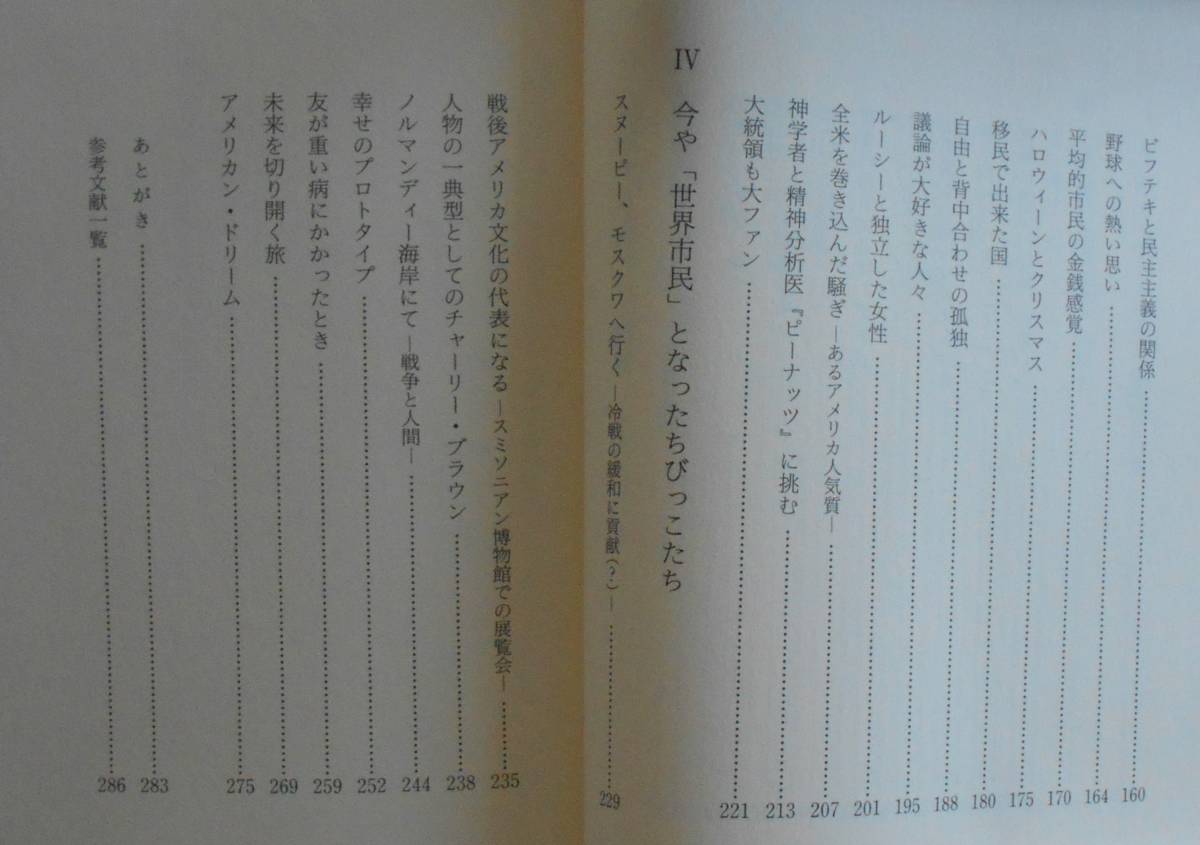 ビフテキと民主主義の関係……160
野球への熱い思い……164
平均的市民の金銭感覚……170
ハロウィーンとクリスマス……175
移民で出来た国……180
自由と背中合わせの孤独……188
議論が大好きな人々……195
ルーシーと独立した女性……201
全米を巻き込んだ騒ぎ―あるアメリカ人気質―……207
神学者と精神分析医『ピーナッツ』に挑む……213
大統領も大ファン……221
Ⅳ 今や「世界市民」となったちびっこたち
スヌーピー、モスクワへ行く―冷戦の緩和に貢献(?)―……229
戦後アメリカ文化の代表になる―スミソニアン博物館での展覧会―……235
人物の一典型としてのチャーリー・ブラウン……238
ノルマンディー海岸にて―戦争と人間―……244
幸せのプロトタイプ……252
友が重い病にかかったとき……259
未来を切り開く旅……269
アメリカン・ドリーム……275
あとがき……283
参考文献一覧……286